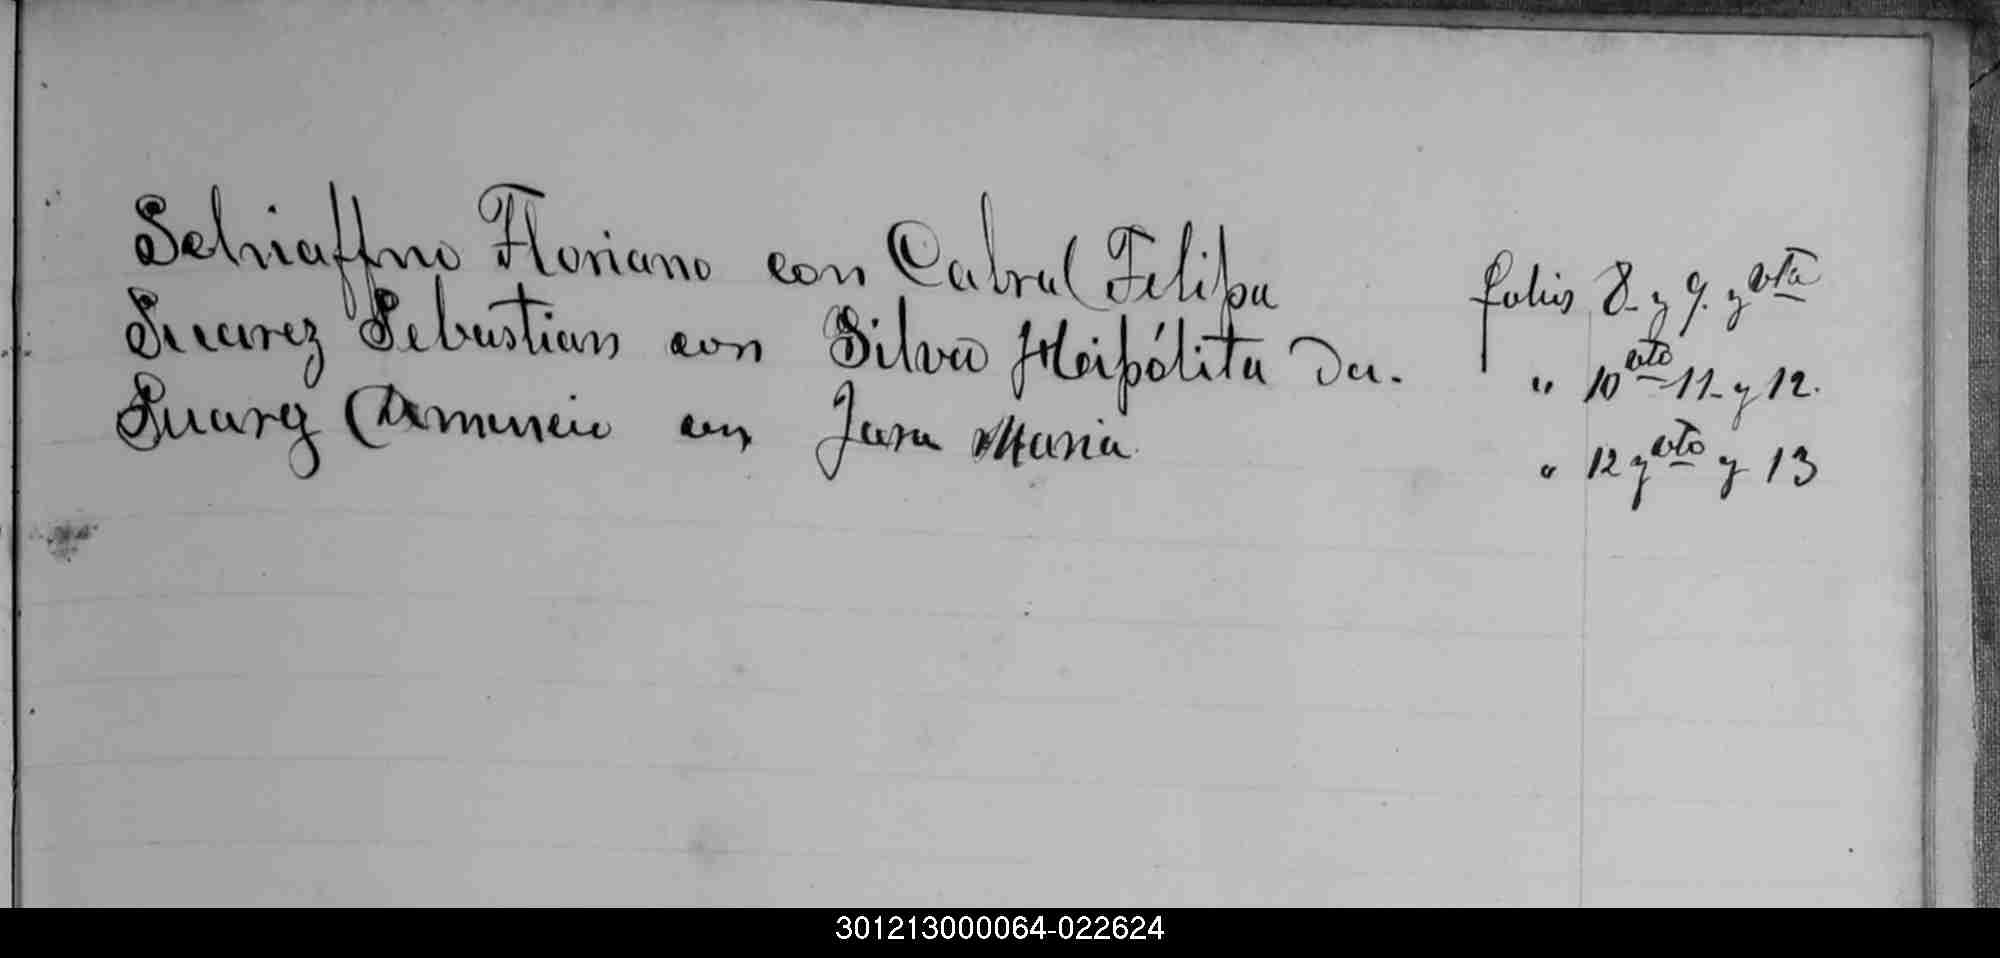 Schiaffino Floriano con Cabral Felipa folios 8 y 9. y vta
Suarez Sebastian con Silva Heipólita Da. " 10 vto 11 y 12.
Suarez con Jara Maria " 12 y vto y 13
301213000064-022624